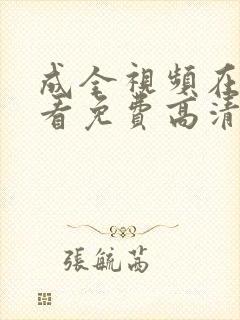 成全視頻在
看免費高清
張毓茜